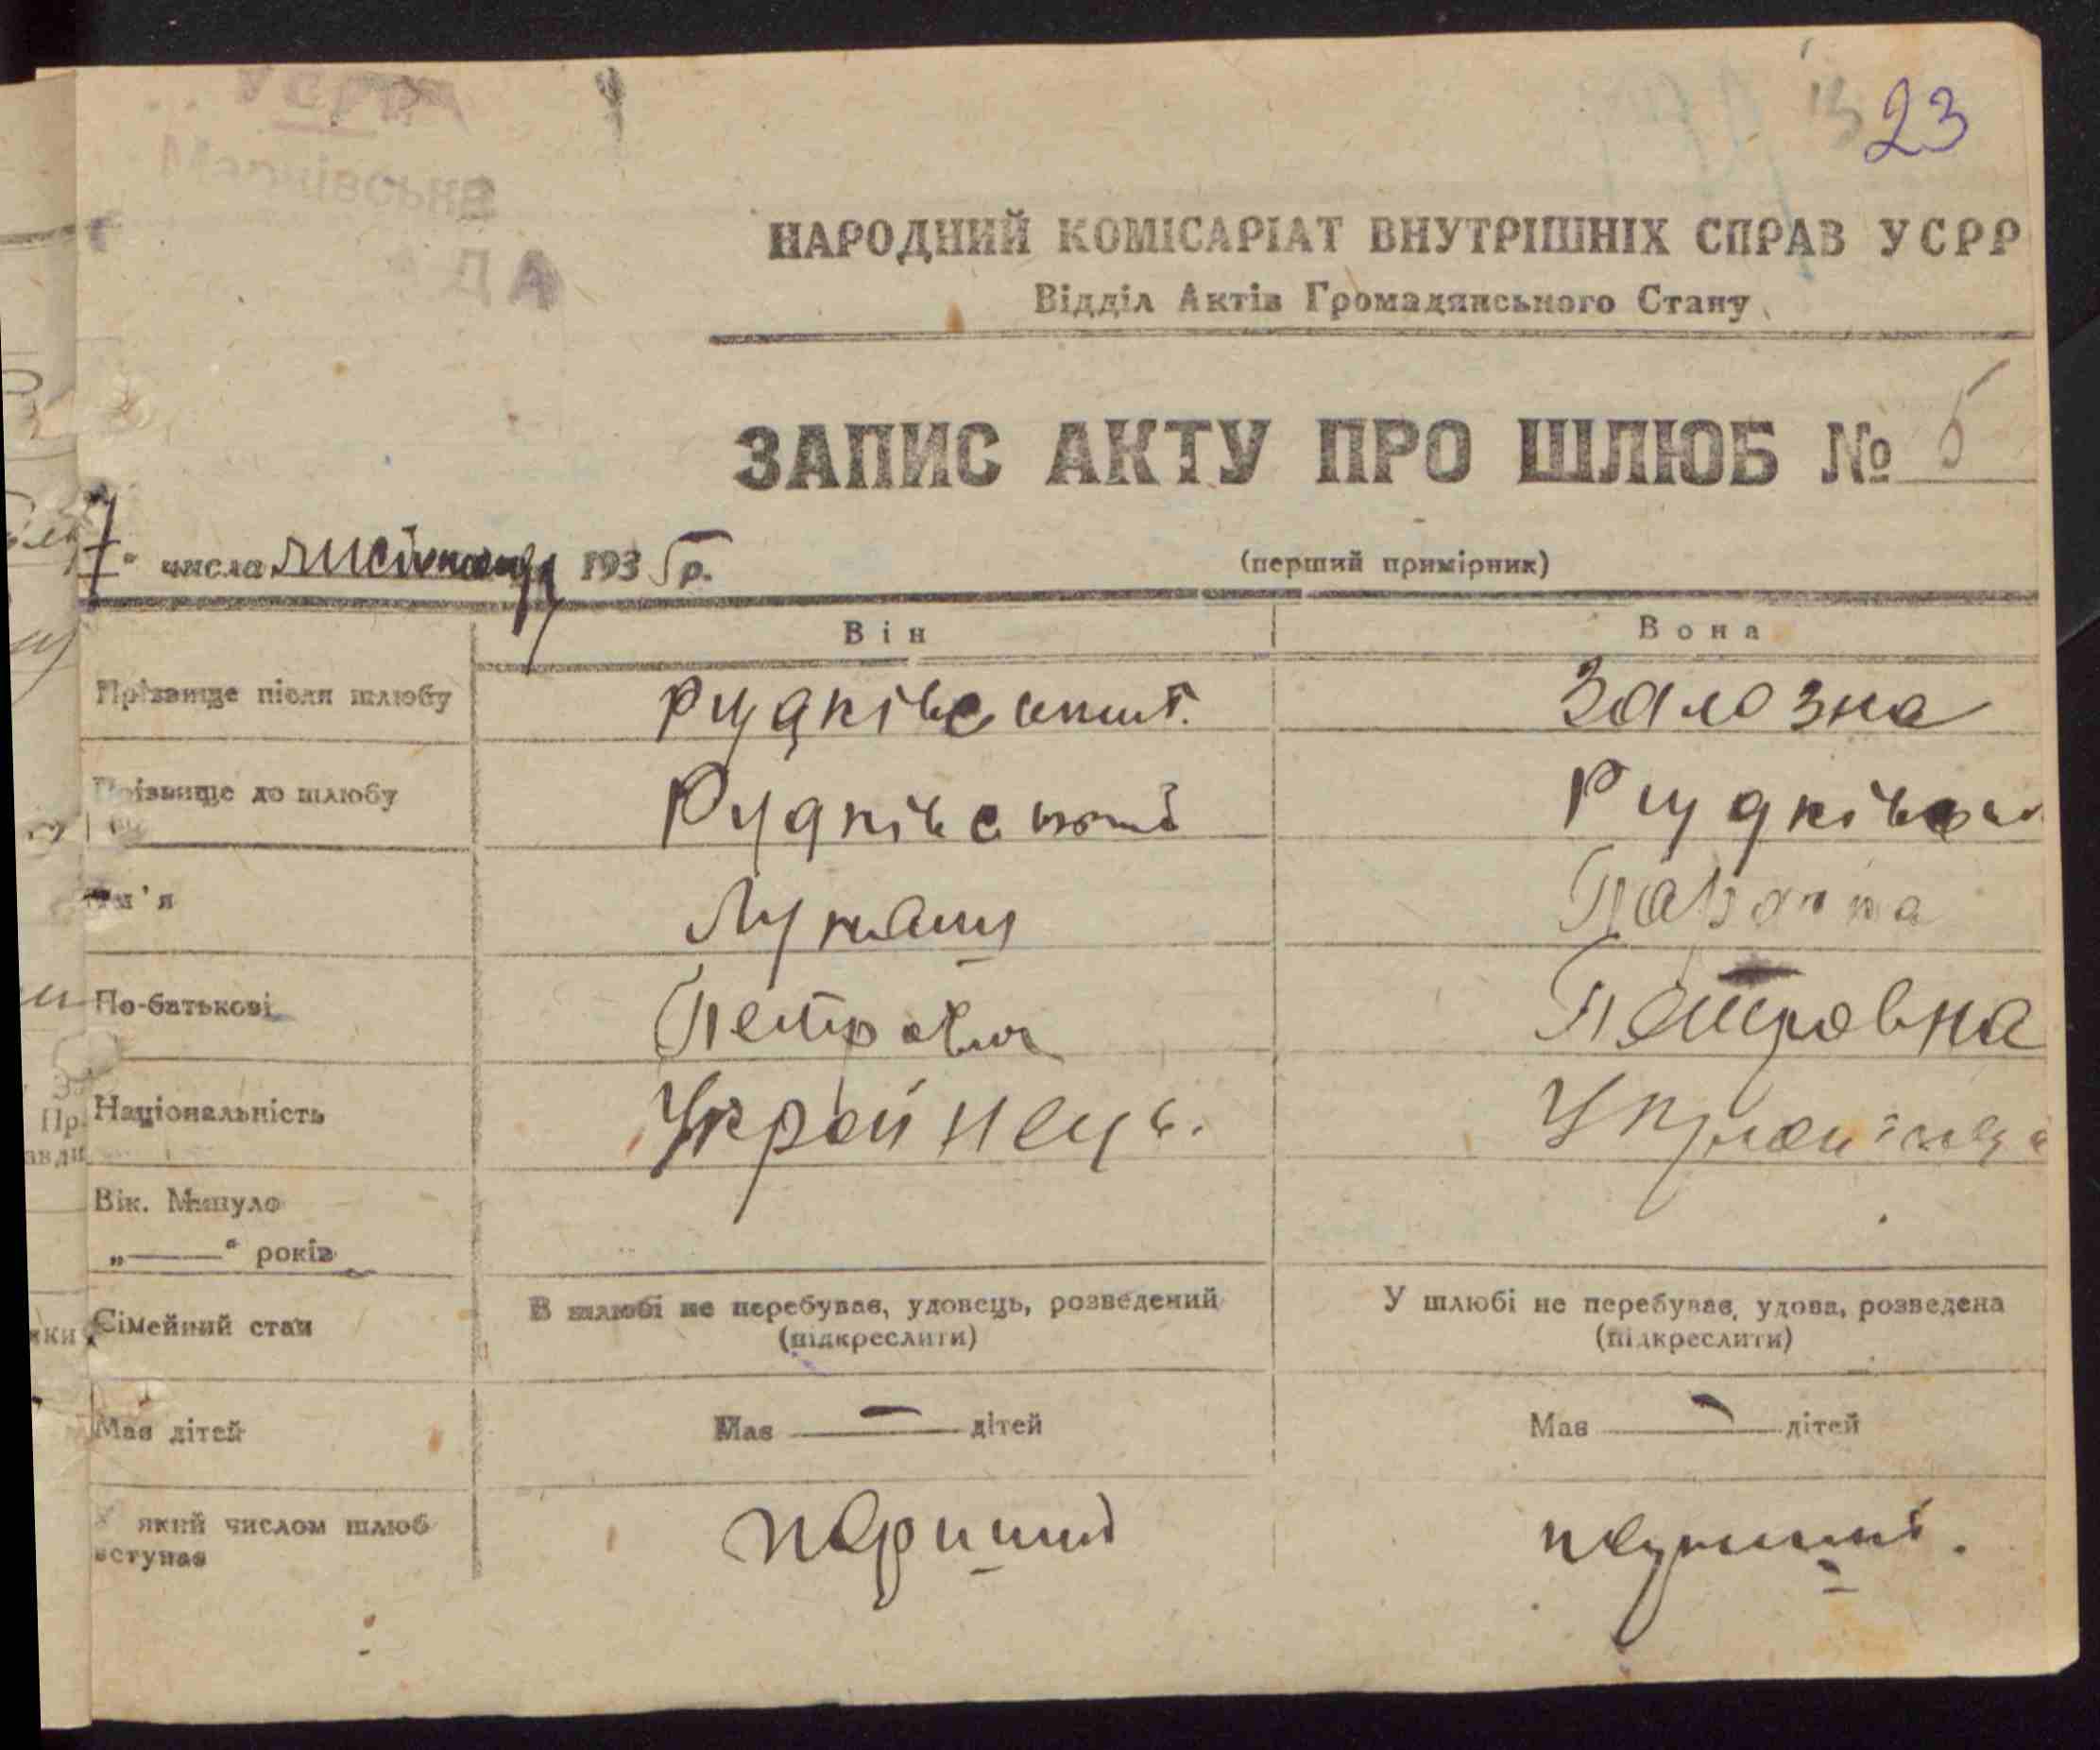 УСРР
Марківська
АДА
23
НАРОДНИЙ КОМІСАРІАТ ВНУТРІШНІХ СПРАВ УСРР
Відділ Актів Громадянського Стану
ЗАПИС АКТУ ПРО ШЛЮБ № 5
7 числа листопада 1935 р. (перший примірник)
Він Вона
Прізвище після шлюбу Рудківський Залозна
Прізвище до шлюбу Рудківський
Ім'я Лукаш
По-батькові Петрович Петровна
Національність Українець. Українка
Вік. Минуло
„——“ років
Сімейний стан В шлюбі не перебував, удовець, розведений У шлюбі не перебував, удова, розведена
(підкреслити) (підкреслити)
Має дітей Має — дітей Має — дітей
який числом шлюб
вступає перший перший.